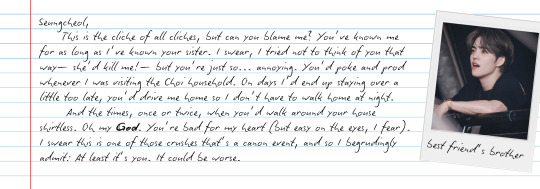 Seungcheol,
This is the cliche of all cliches, but can you blame me? You've known me
for as long as I've known your sister. I swear, I tried not to think of you that
way— she'd kill me!— but you're just so... annoying. You'd poke and prod
whenever I was visiting the Choi household. On days I'd end up staying over a
little too late, you'd drive me home so I don't have to walk home at night.
And the times, once or twice, when you'd walk around your house
shirtless. Oh my God. You're bad for my heart (but easy on the eyes, I fear).
I swear this is one of those crushes that's a canon event, and so I begrudingly
admit: At least it's you. It could be worse.
best friend's brother